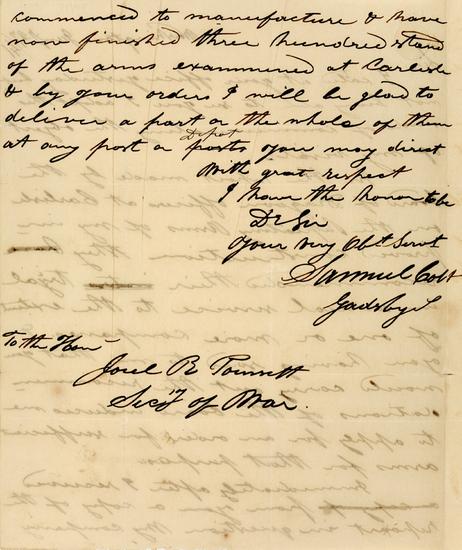 commenced to manufacture & have
now finished three hundred stand
of the arms examened at Carlisle
& by your orders I will be glad to
deliver a part or the whole of them
Depot
at any post or posts you may direct
With great respect
I have the honor to be
Dr Sir
Your very Obt Servt
Samuel Colt
Gadsby's
To the Hon
Joel R Poinsett
Secy of War.